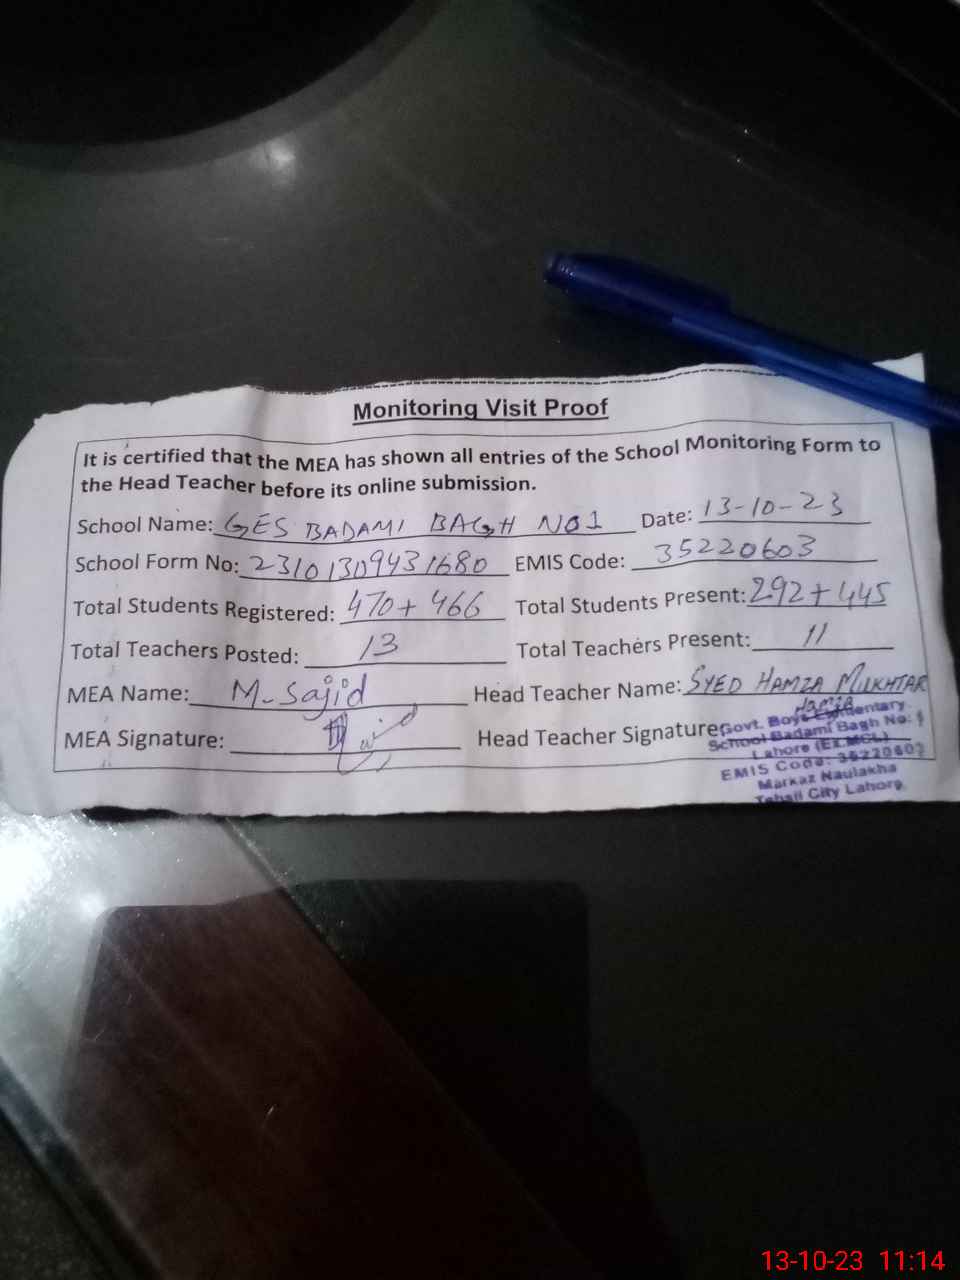 Monitoring Visit Proof
It is certified that the MEA has shown all entries of the School Monitoring Form to
the Head Teacher before its online submission.
School Name: GES BADAMI BAGH NO1 Date: 13-10-23
School Form No: 2310130943 1680 EMIS Code: 35220603
Total Students Registered: 470+ 466 Total Students Present: 292+445
Total Teachers Posted: 13 Total Teachers Present: 11
MEA Name: M-Sajid Head Teacher Name: SYED HAMZA MUKHTAR
MEA Signature: Head Teacher Signature
Govt. Boys Elementary
School Badami Bagh No: 1
Lahore (Ex.MCL)
EMIS Code: 35220603
Markaz Naulakha
Tehsil City Lahore
13-10-23 11:14